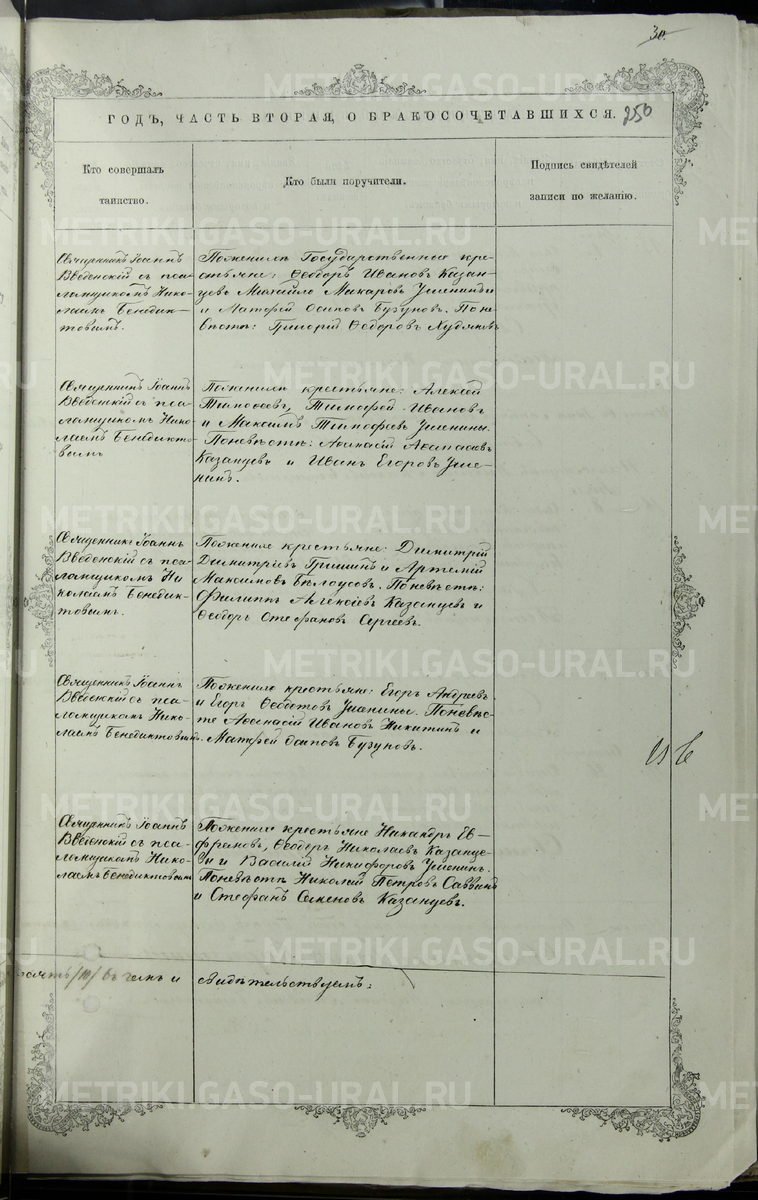 30
ГОДЪ, ЧАСТЬ ВТОРАЯ, О БРАКОСОЧЕТАВШИХСЯ. 256
Кто совершалъ
таинство.
Кто были поручители.
Подпись свидѣтелей
записи по желанію.
Священникъ Іоаннъ
Введенскій съ пса-
ломщикомъ Нико-
лаемъ Бенедик-
товымъ.
По женихѣ Государственные кре-
стьяне: Ѳеодоръ Ивановъ Казан-
цевъ Михайло Макаровъ
и Матфей Осиповъ Бузуновъ. По не-
вѣстѣ: Григорій Ѳедоровъ Худяковъ
Священникъ Іоаннъ
Введенскій съ пса-
ломщикомъ Нико-
лаемъ Бенедикто-
вымъ
По женихѣ крестьяне: Алексій
Тимоѳеевъ, Тимофей Ивановъ
и Максимъ Тимофеевъ
По невѣстѣ: Аѳанасій
Казанцевъ и Иванъ Егоровъ
Священникъ Іоаннъ
Введенскій съ пса-
ломщикомъ Ни-
колаемъ Бенедик-
товымъ.
По женихѣ крестьяне: Димитрій
Димитріевъ Гришинъ и Артемій
Максимовъ Бѣлоусовъ. По невѣстѣ:
Филиппъ Алексіевъ Казанцевъ и
Ѳеодоръ Стефановъ Сергѣевъ.
Священникъ Іоаннъ
Введенскій съ пса-
ломщикомъ Нико-
лаемъ Бенедиктовымъ.
По женихѣ крестьяне: Егоръ Андреевъ
и Егоръ Ѳедотовъ По невѣс-
те Аѳанасій Ивановъ Никитинъ и
Матфей Осиповъ Бузуновъ.
Священникъ Іоаннъ
Введенскій съ пса-
ломщикомъ Нико-
лаемъ Бенедиктовымъ
По женихѣ крестьяне Никандръ Ев-
Ѳеодоръ Николаевъ Казанце-
и Василій Никифоровъ
По невѣстѣ Николай Петровъ Саввинъ
и Стефанъ Семеновъ Казанцевъ.
/10/ въ чемъ и свидѣтельствуемъ:
METRIKI.GASO-URAL.RU